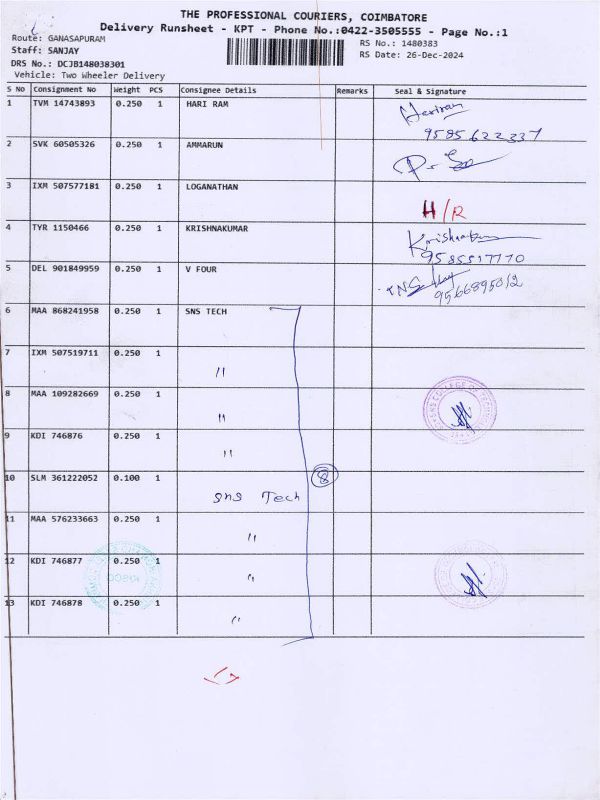 THE PROFESSIONAL COURIERS, COIMBATORE
Delivery Runsheet - KPT - Phone No.:0422-3505555 - Page No.:1
Route: GANASAPURAM
RS No.: 1480383
Staff: SANJAY
RS Date: 26-Dec-2024
DRS No.: DCJB148038301
Vehicle: Two Wheeler Delivery
S No Consignment No Weight PCS Consignee Details Remarks Seal & Signature
1 TVM 14743893 0.250 1 HARI RAM Hariram
9585622337
2 SVK 60505326 0.250 1 AMMARUN
3 IXM 507577181 0.250 1 LOGANATHAN H/R
4 TYR 1150466 0.250 1 KRISHNAKUMAR Krishnakum
9585517770
5 DEL 901849959 0.250 1 V FOUR
9566895012
6 MAA 868241958 0.250 1 SNS TECH
7 IXM 507519711 0.250 1 "
8 MAA 109282669 0.250 1 "
9 KDI 746876 0.250 1 "
10 SLM 361222052 0.100 1 SNS Tech 8
11 MAA 576233663 0.250 1 "
12 KDI 746877 0.250 1 "
13 KDI 746878 0.250 1 "